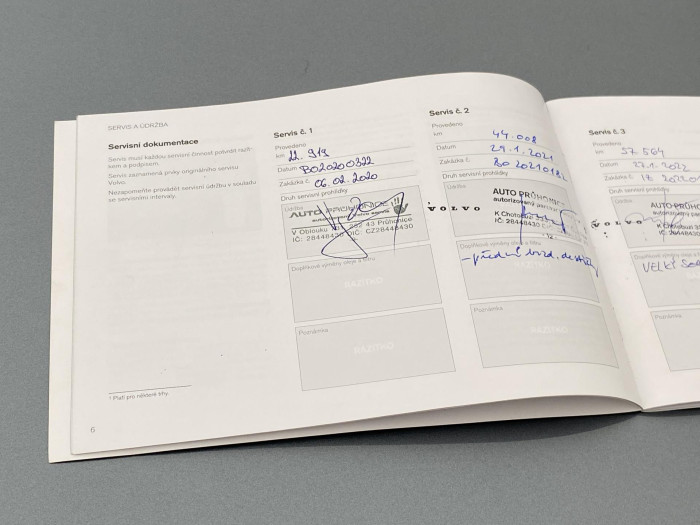 SERVIS A ÚDRŽBA
Servisní dokumentace
Servis musí každou servisní činnost potvrdit razít-
kem a podpisem.
Servis zaznamená prvky originálního servisu
Volvo.
Nezapomeňte provádět servisní údržbu v souladu
se servisními intervaly.
¹ Platí pro některé trhy.
6
Servis č. 1
Provedeno
km 22. 919
Datum BO20200322
Zakázka č. 06.02.2020
Druh servisní prohlídky
Údržba
AUTO PRŮHONICE
V Oblouku 252 43 Průhonice
IČ: 28448430 DIČ: CZ28448430
Doplňkové výměny oleje a filtru
RAZÍTKO
Poznámka
RAZÍTKO
Servis č. 2
Provedeno
km 44.008
Datum 29.1.2021
Zakázka č.
Druh servisní prohlídky
Údržba
VOLVO
AUTO PRŮHONICE
autorizovaný
K Chotobuzi
IČ: 28448430
Doplňkové výměny oleje a filtru
- přední brzd. destičky
Poznámka
RAZÍTKO
Servis č. 3
Provedeno
km 57 564
Datum 27.1.2022
Zakázka č.
Druh servisní prohlídky
Údržba
VOLVO
AUTO PRŮHONI
K Chotobuzi
IČ: 28448430
VELKÝ
Poznámka